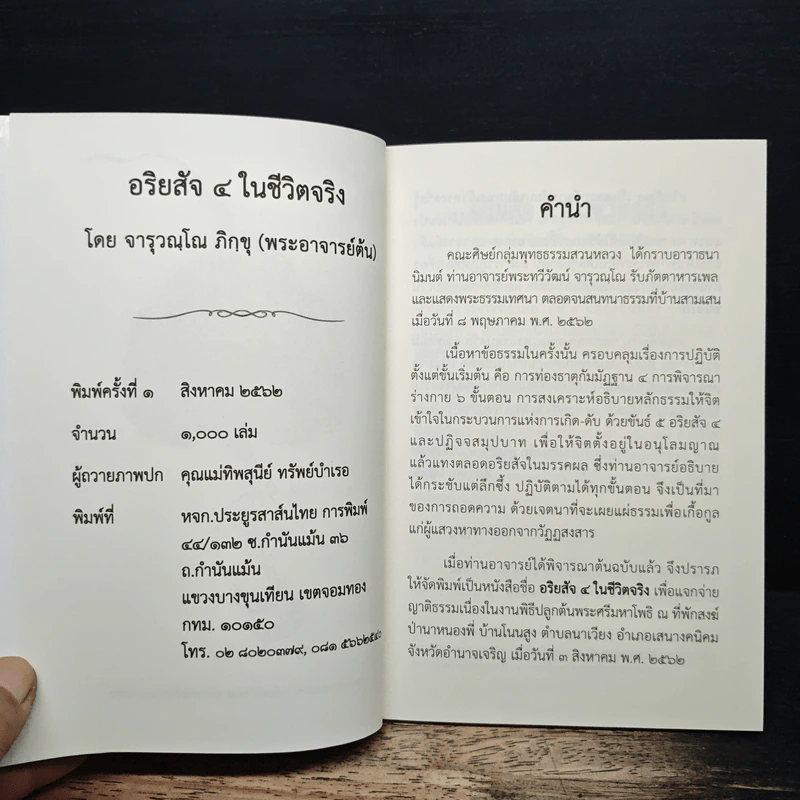 อริยสัจ ๔ ในชีวิตจริง
โดย จารุวณฺโณ ภิกฺขุ (พระอาจารย์ต้น)
พิมพ์ครั้งที่ ๑ สิงหาคม ๒๕๖๒
จำนวน ๑,๐๐๐ เล่ม
ผู้ถวายภาพปก คุณแม่ทิพสุนีย์ ทรัพย์บำเรอ
พิมพ์ที่ หจก.ประยูรสาส์นไทย การพิมพ์
๔๔/๑๓๒ ซ.กำนันแม้น ๓๖
ถ.กำนันแม้น
แขวงบางขุนเทียน เขตจอมทอง
กทม. ๑๐๑๕๐
โทร. ๐๒ ๘๐๒๐๓๗๙, ๐๘๑ ๕๖๖๒๕๔๐
คำนำ
คณะศิษย์กลุ่มพุทธธรรมสวนหลวง ได้กราบอาราธนา
นิมนต์ ท่านอาจารย์พระทวีวัฒน์ จารุวณฺโณ รับภัตตาหารเพล
และแสดงพระธรรมเทศนา ตลอดจนสนทนาธรรมที่บ้านสามเสน
เมื่อวันที่ ๘ พฤษภาคม พ.ศ. ๒๕๖๒
เนื้อหาข้อธรรมในครั้งนั้น ครอบคลุมเรื่องการปฏิบัติ
ตั้งแต่ขั้นเริ่มต้น คือ การท่องธาตุกัมมัฏฐาน ๔ การพิจารณา
ร่างกาย ๖ ขั้นตอน การสงเคราะห์อธิบายหลักธรรมให้จิต
เข้าใจในกระบวนการแห่งการเกิด-ดับ ด้วยขันธ์ ๕ อริยสัจ ๔
และปฏิจจสมุปบาท เพื่อให้จิตตั้งอยู่ในอนุโลมญาณ
แล้วแทงตลอดอริยสัจในมรรคผล ซึ่งท่านอาจารย์อธิบาย
ได้กระชับแต่ลึกซึ้ง ปฏิบัติตามได้ทุกขั้นตอน จึงเป็นที่มา
ของการถอดความ ด้วยเจตนาที่จะเผยแผ่ธรรมเพื่อเกื้อกูล
แก่ผู้แสวงหาทางออกจากวัฏฏสงสาร
เมื่อท่านอาจารย์ได้พิจารณาต้นฉบับแล้ว จึงปรารภ
ให้จัดพิมพ์เป็นหนังสือชื่อ อริยสัจ ๔ ในชีวิตจริง เพื่อแจกจ่าย
ญาติธรรมเนื่องในงานพิธีปลูกต้นพระศรีมหาโพธิ ณ ที่พักสงฆ์
ป่านาหนองพี่ บ้านโนนสูง ตำบลนาเวียง อำเภอเสนางคนิคม
จังหวัดอำนาจเจริญ เมื่อวันที่ ๓ สิงหาคม พ.ศ. ๒๕๖๒